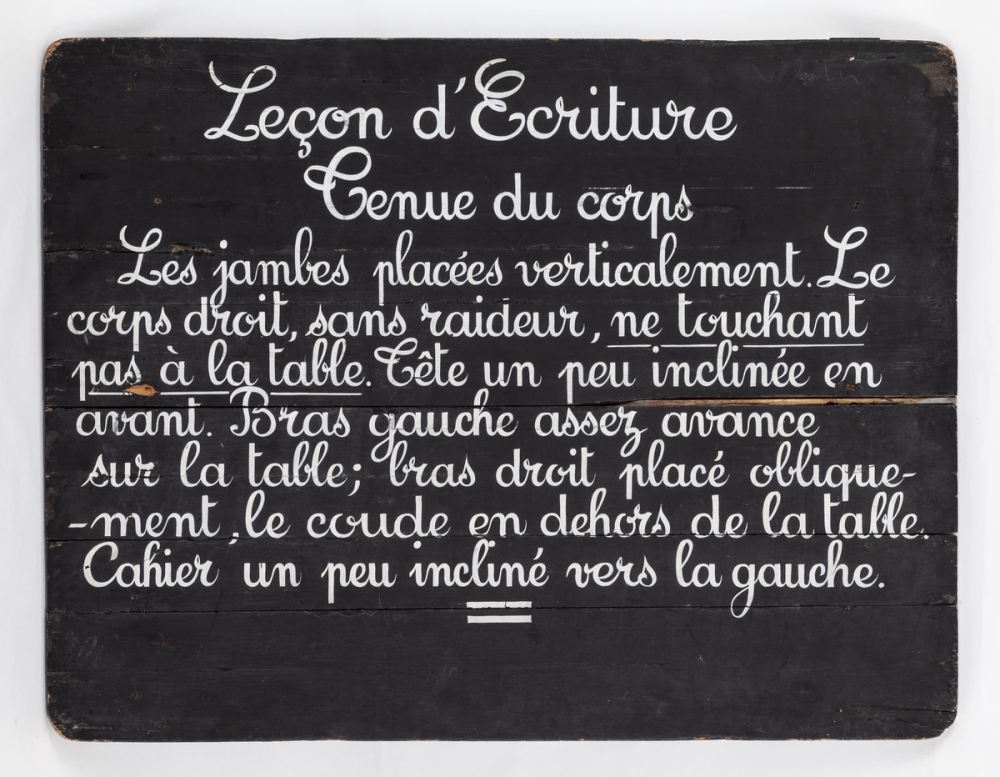 Leçon d'Ecriture
Tenue du corps
Les jambes placées verticalement. Le
corps droit, sans raideur, ne touchant
pas à la table. Tête un peu inclinée en
avant. Bras gauche assez avance
sur la table; bras droit placé oblique-
-ment, le coude en dehors de la table.
Cahier un peu incliné vers la gauche.